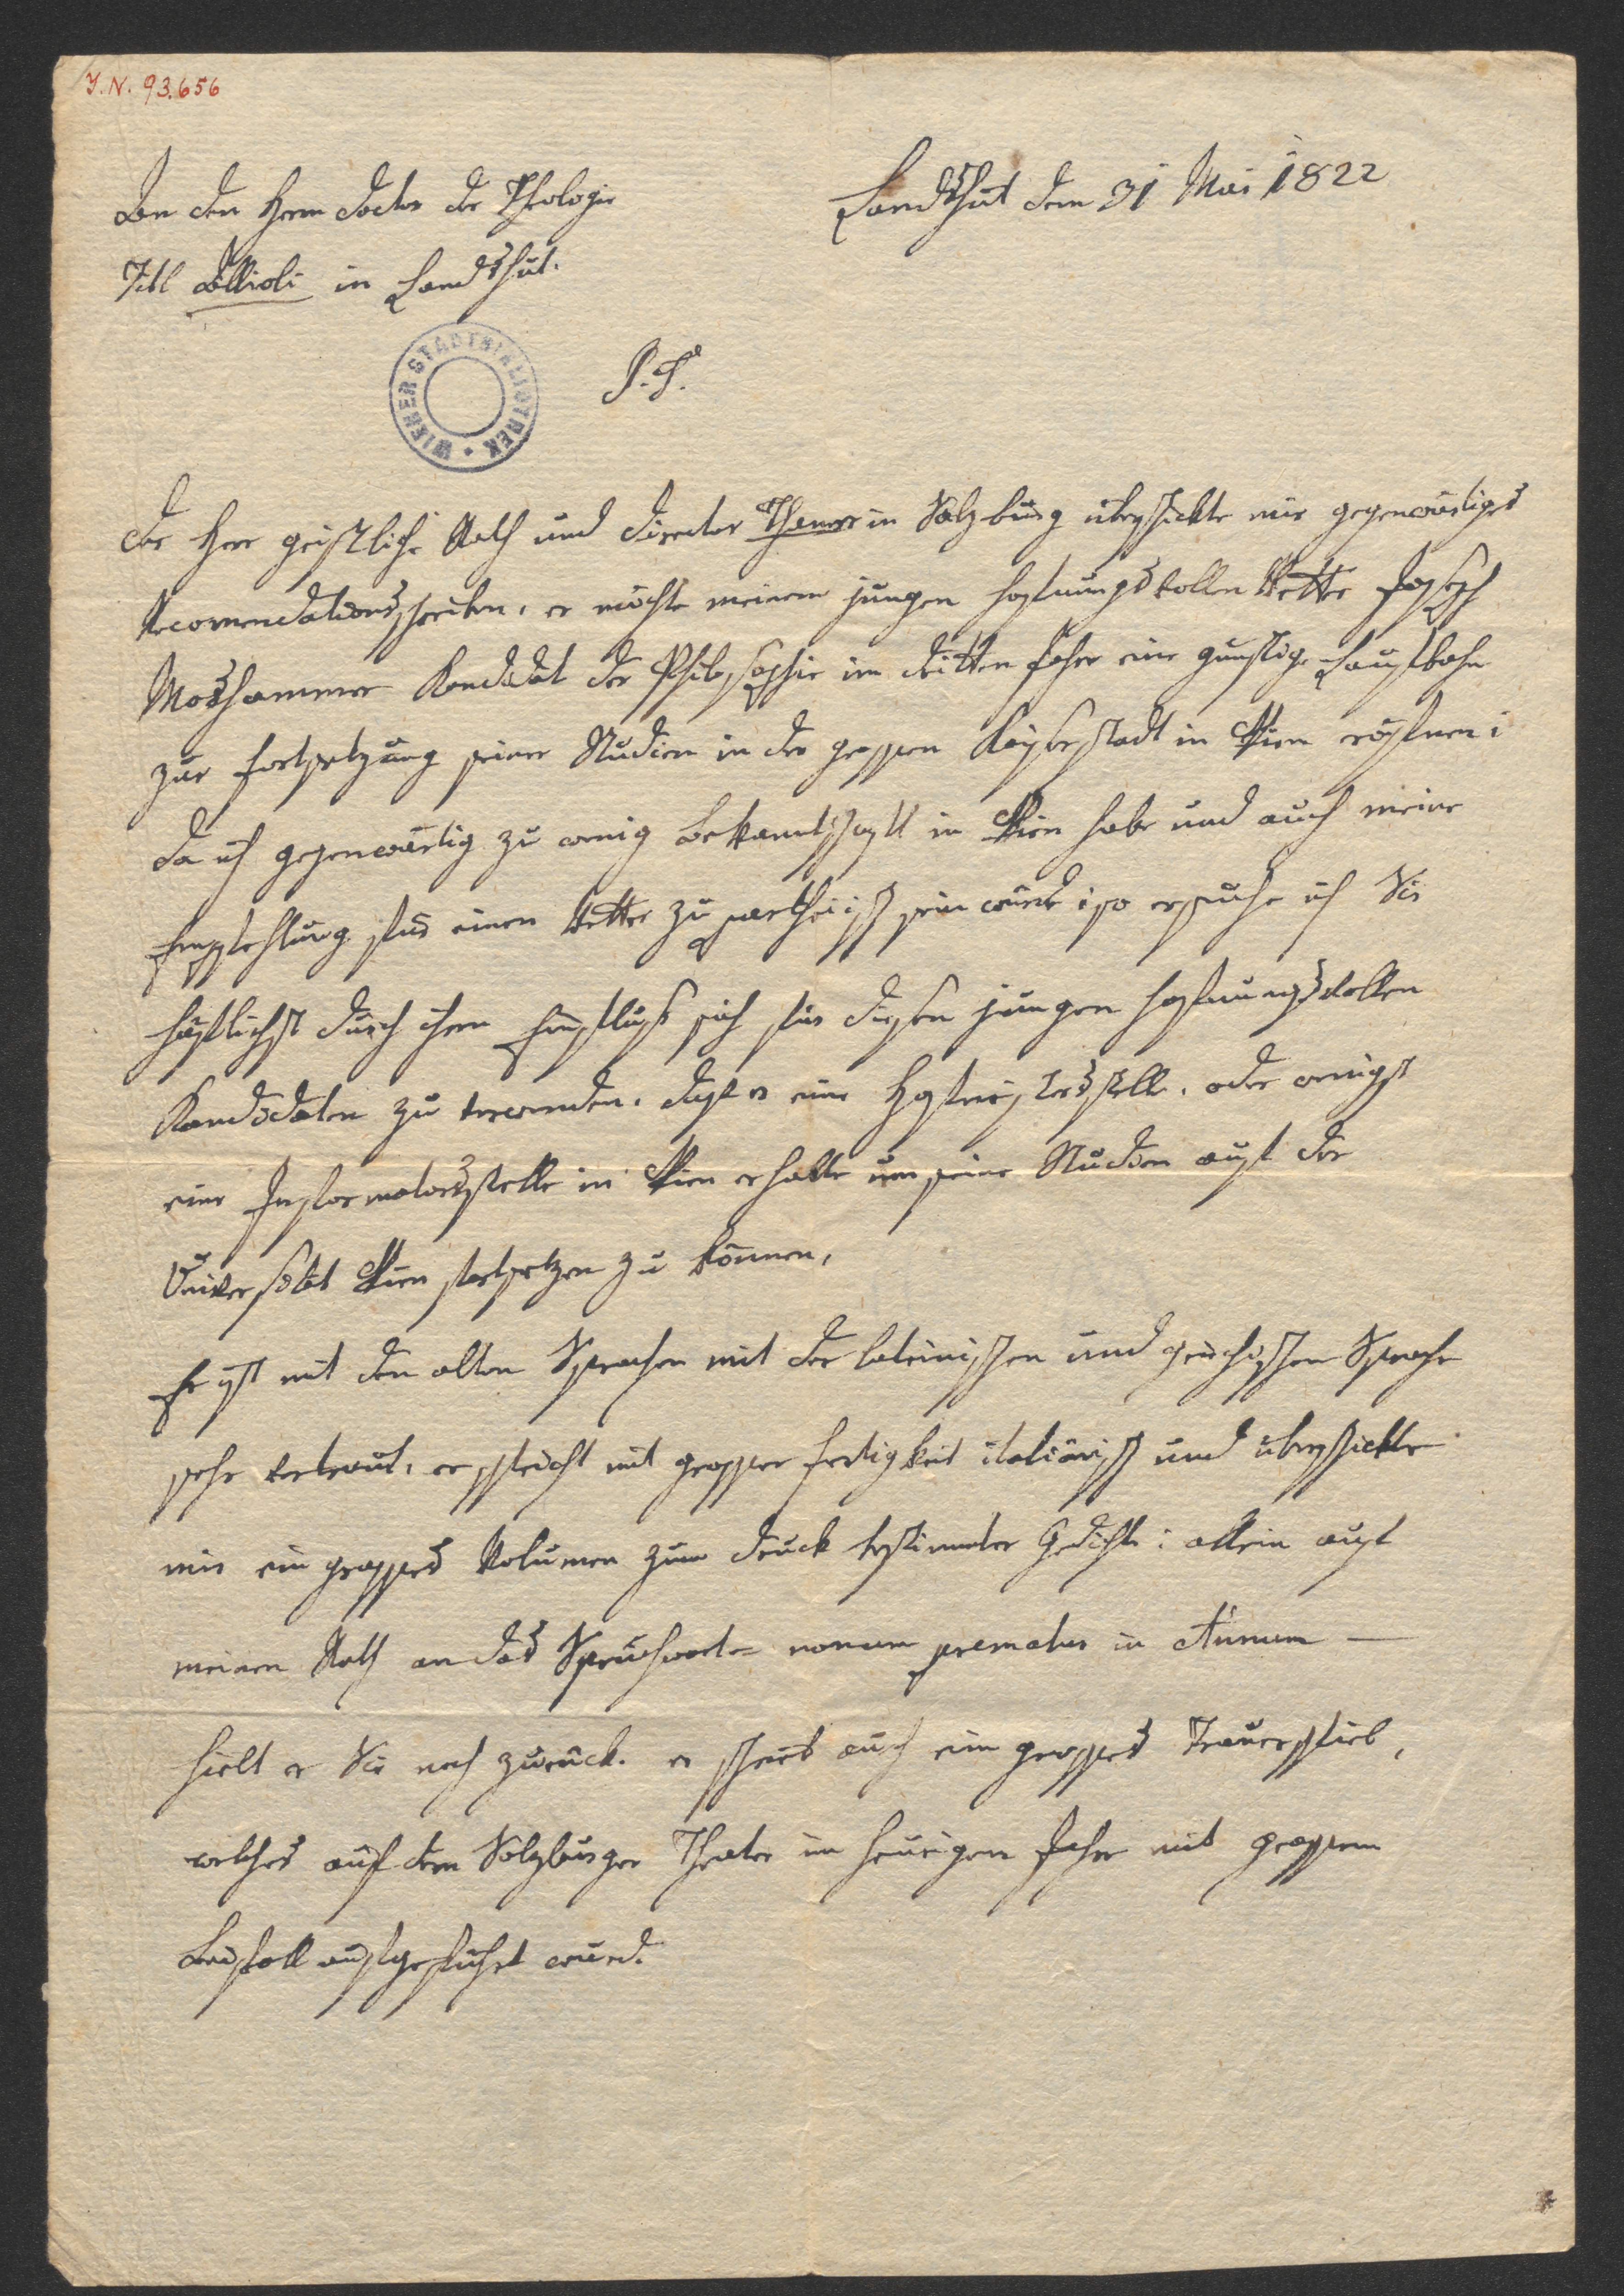 I.N. 93.656
Landshut dem 31 Mai 1822
An den Herrn Doctor der Theologie
Titl Allioli in Landshut.
WIENER STADTBIBLIOTHEK
P. P.
Der Herr geistliche Rath und Director Thanner in Salzburg überschickte mir gegenwärtiges
Recomendationsschreiben, er möchte meinem jungen hofnungsvollen Vetter Joseph
Moshammer Kandidat der Philosophie im dritten Jahre eine günstige Laufbahn
zur Fortsetzung seiner Studien in der grossen Kayserstadt in Wien eröfnen;
da ich gegenwärtig zu wenig Bekanntschaft in Wien habe und auch meine
Empfehlung für einen Vetter zu partheiisch sein würde; so ersuche ich Sie
höflichst durch ihren Einfluss sich für diesen jungen hofnungsvollen
Kandidaten zu verwenden, dass er eine Hofmeistersstelle, oder wenigst
eine Informatorsstelle in Wien erhalte um seine Studien auf der
Universität Wien fortsetzen zu können,
Er ist mit den alten Sprachen mit der lateinischen und griechischen Sprache
sehr vertraut, er spricht mit grosser Fertigkeit italiänisch und überschickte
mir ein grosses Volumen zum Druck bestimmter Gedichte; allein auf
meinen Rath an das Sprüchwort = nonum prematur in Annum —
hielt er Sie noch zurück. er schrieb auch ein grosses Trauerspiel,
welches auf dem Salzburger Theater im heurigen Jahre mit grossem
Beifall aufgeführt wurd.